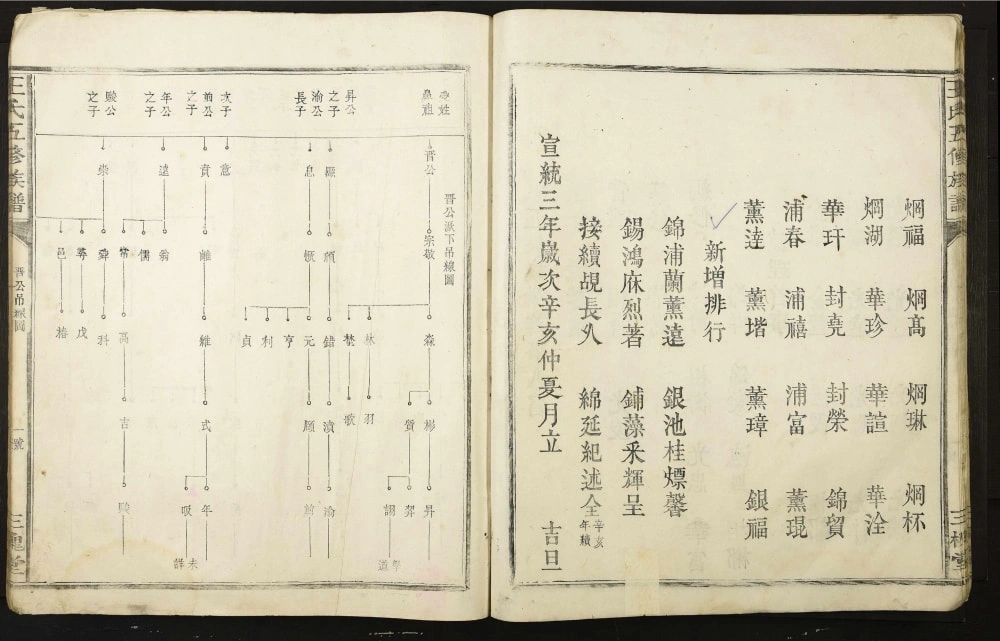 王氏五修族譜
三槐堂
烱福 烱高 烱琳 烱杯
烱湖 華珍 華諠 華洤
華玕 封堯 封榮 錦貿
浦春 浦禧 浦富 薰琨
薰逵 薰堦 薰璋 銀福
新增排行
錦浦蘭薰遠 銀池桂熛馨
錫鴻庥烈著 鋪藻釆輝呈
接續覘長久 綿延紀述全 辛亥年續
宣統三年歲次辛亥仲夏月立 吉旦
晋公派下吊線圖
姓
鼻祖
晋公 宗敬 森 彬 昇
質 羿 詡
學道
林 羽
棼 歌
昇公
之子 顯 頎 錯 瀆 渝
渝公
長子 息 慨 元 愿 前
亨
利
貞
次子 意
前公
之子 貴 離 維 式 年
吸
未詳
年公
之子 遠 翁
儒
常 高 吉 駿
駿公
之子 崇 舜 科
尋 戊
邑 格
王氏五修族譜
晋公吊線圖
一號
三槐堂